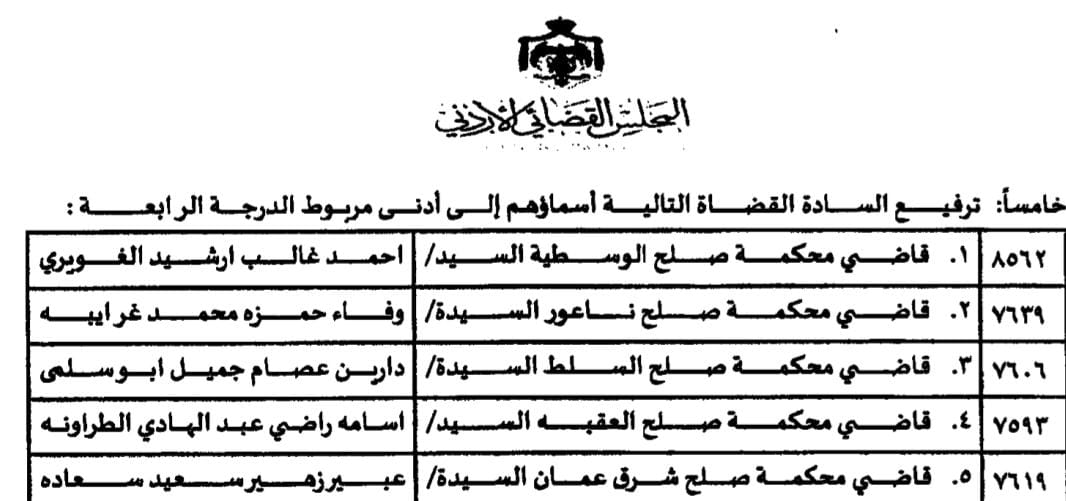 المجلس القضائي الأردني
خامساً: ترفيع السادة القضاة التالية أسماؤهم إلى أدنى مربوط الدرجة الرابعة :
٨٥٦٢ ١. قاضي محكمة صلح الوسطية السيد/ احمد غالب ارشيد الغويري
٧٦٣٩ ٢. قاضي محكمة صلح ناعور السيدة/ وفاء حمزه محمد غرايبه
٧٦٠٦ ٣. قاضي محكمة صلح السلط السيدة/ دارين عصام جميل ابوسلمى
٧٥٩٣ ٤. قاضي محكمة صلح العقبه السيد/ اسامه راضي عبد الهادي الطراونه
٧٦١٩ ٥. قاضي محكمة صلح شرق عمان السيدة/ عبير زهير سعيد سعاده